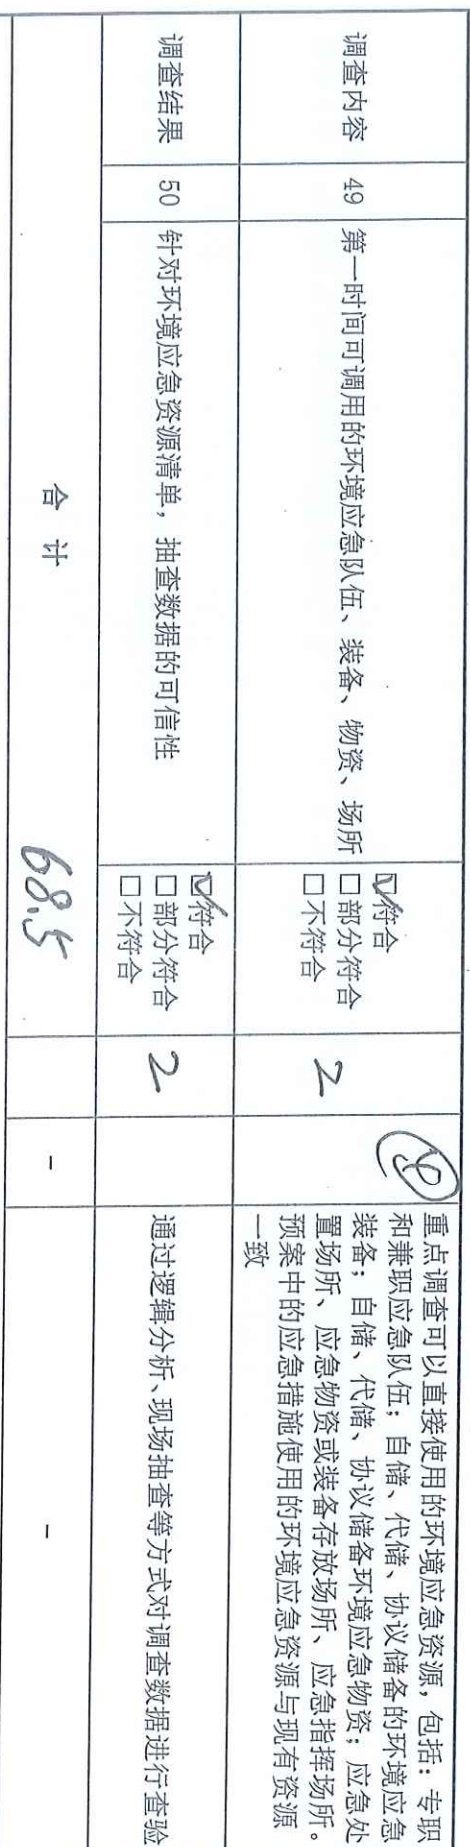 调查内容
49
第一时间可调用的环境应急队伍、装备、物资、场所
☑符合
□部分符合
□不符合
2
重点调查可以直接使用的环境应急资源，包括：专职
和兼职应急队伍；自储、代储、协议储备的环境应急
装备；自储、代储、协议储备环境应急物资；应急处
置场所、应急物资或装备存放场所、应急指挥场所。
预案中的应急措施使用的环境应急资源与现有资源
一致
调查结果
50
针对环境应急资源清单，抽查数据的可信性
☑符合
□部分符合
□不符合
2
通过逻辑分析、现场抽查等方式对调查数据进行查验
合计
68.5
-
-